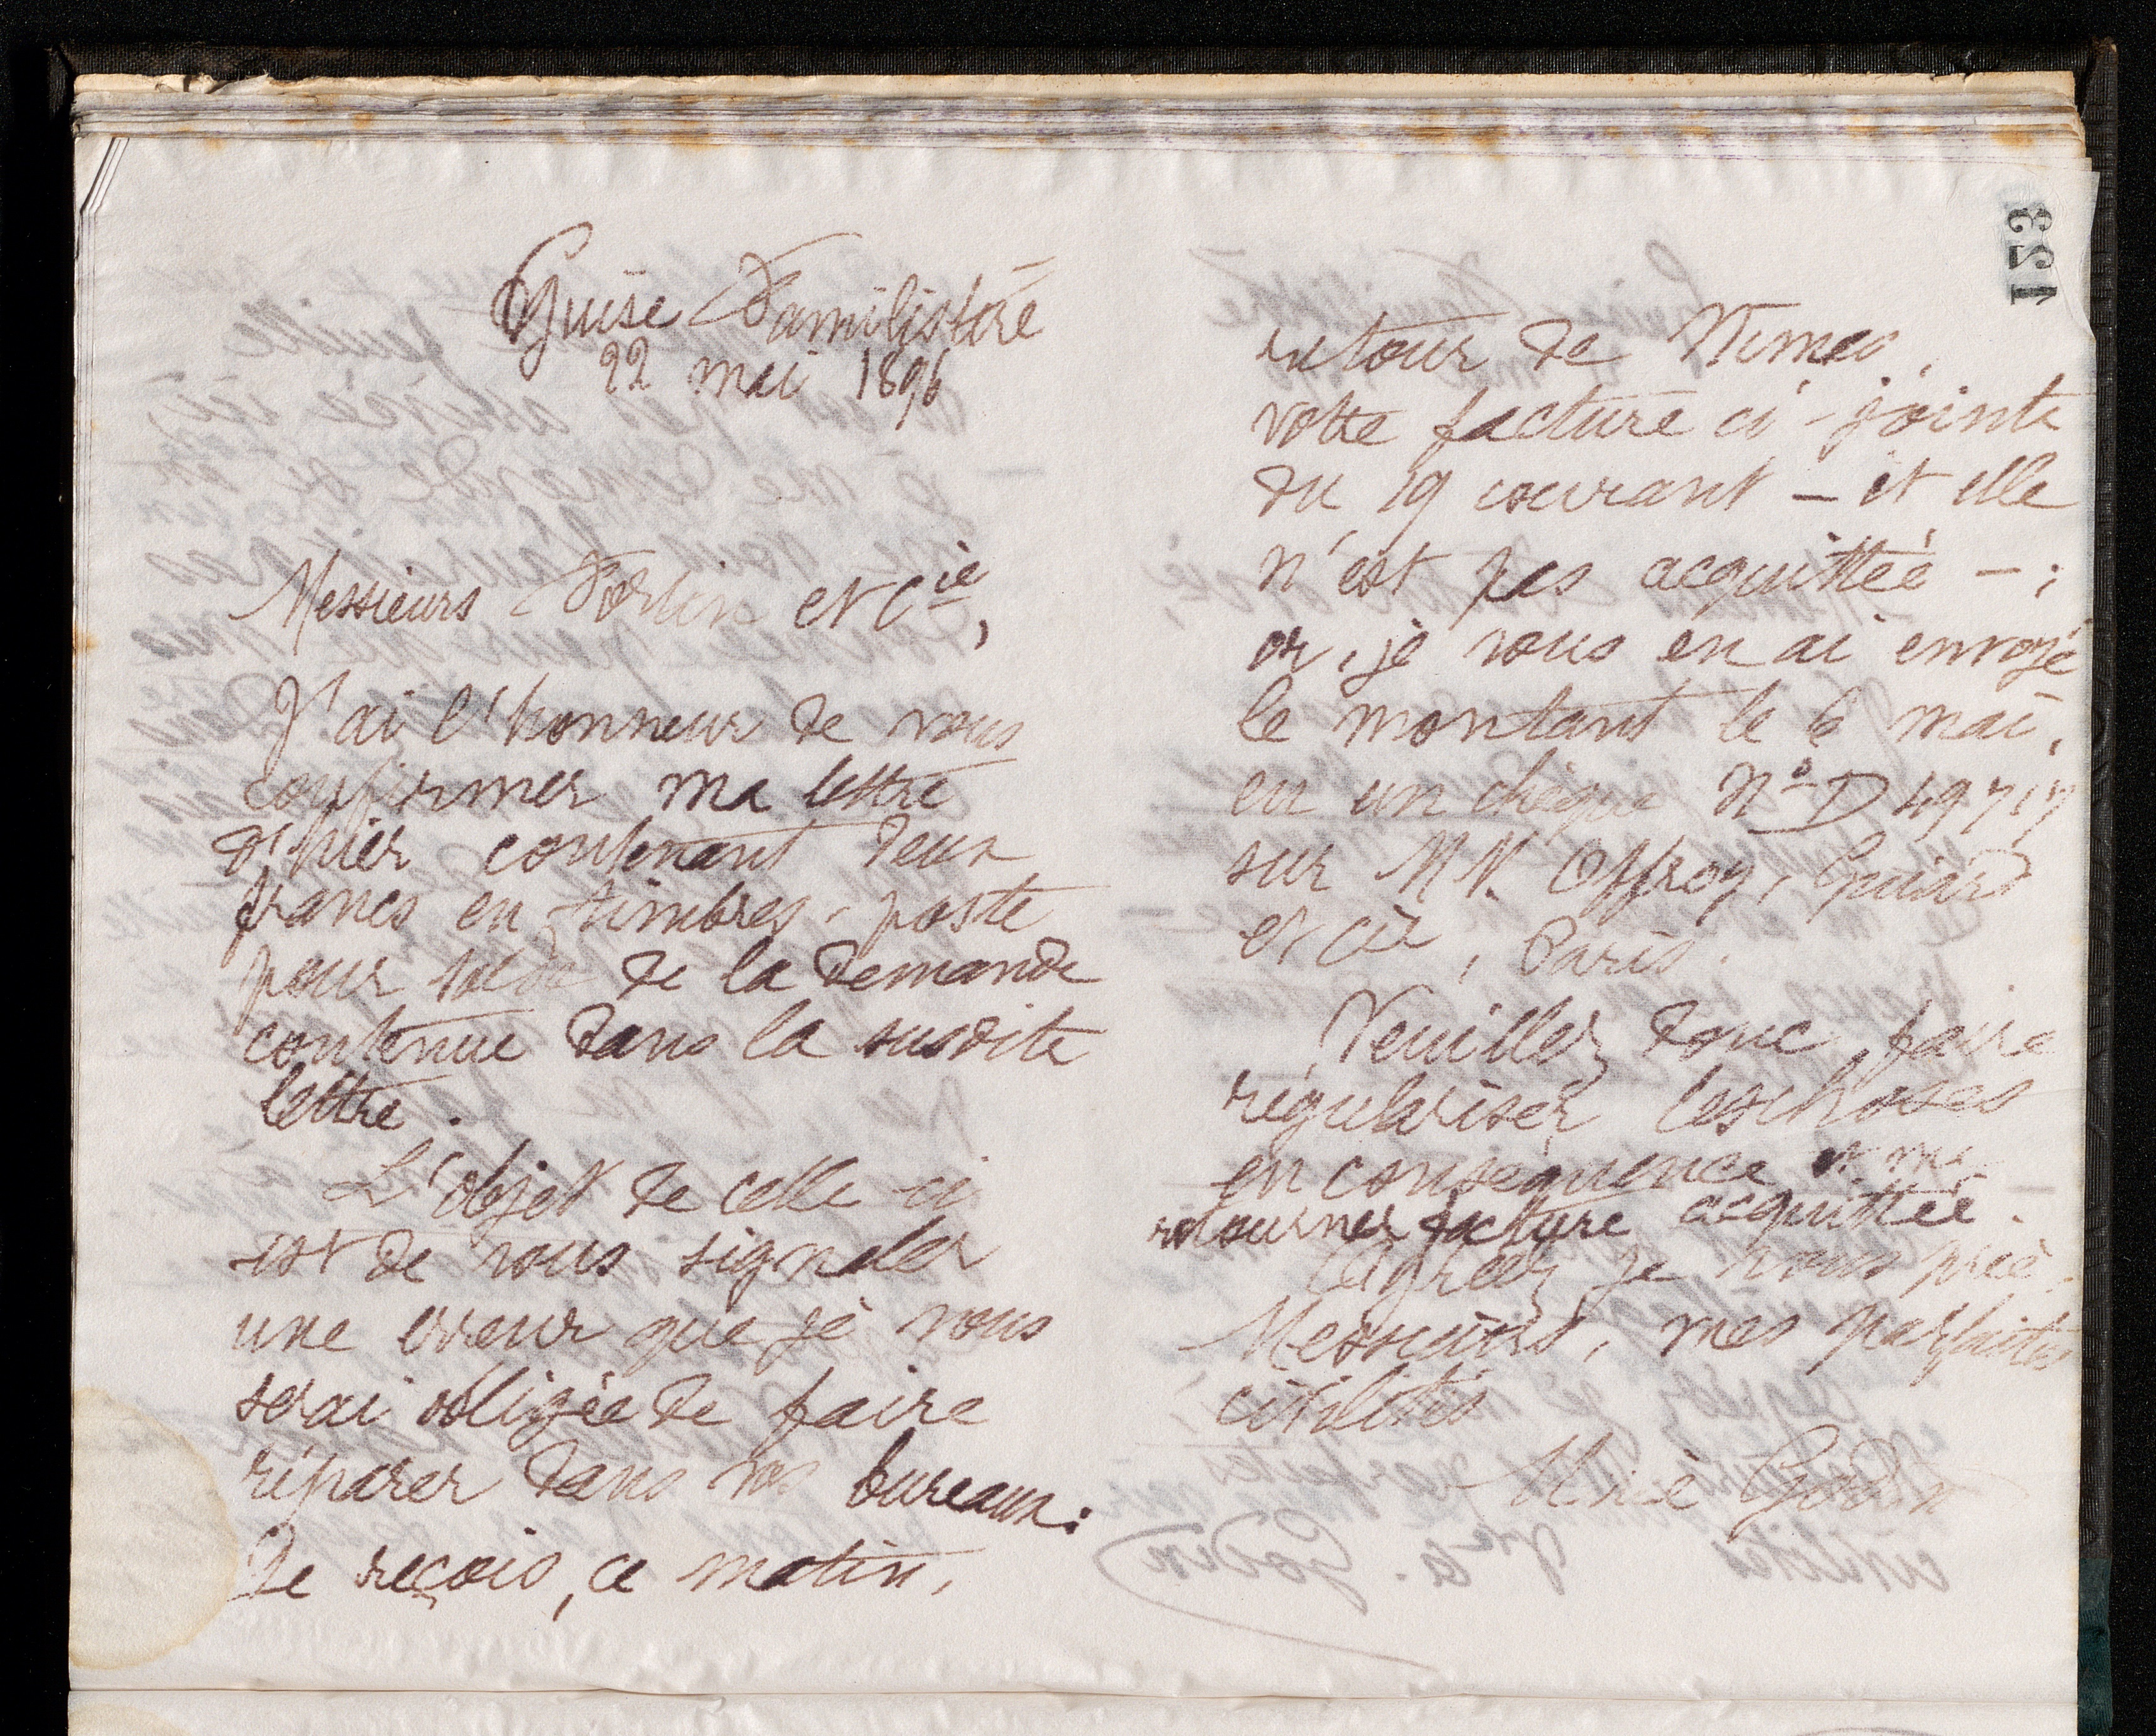 153
Guise Familistère
22 mai 1896
Messieurs Fortin et Cie,
J'ai l'honneur de vous
confirmer ma lettre
d'hier contenant deux
francs en timbres-poste
pour solde de la demande
contenue dans la susdite
lettre.
L'objet de celle-ci
est de vous signaler
une erreur que je vous
serai obligée de faire
réparer dans vos bureaux:
Je reçois, ce matin,
retour de Nimes,
votre facture ci-jointe
du 19 courant – et elle
n'est pas acquittée – ;
or, je vous en ai envoyé
le montant le 6 mai,
en un chèque No D 49717
sur MM. Offroy, Guiard
et Cie, Paris.
Veuillez donc faire
régulariser les choses
en conséquence et me
retourner facture acquittée.
Agréez je vous prie,
Messieurs, mes parfaites
civilités
Marie Godin